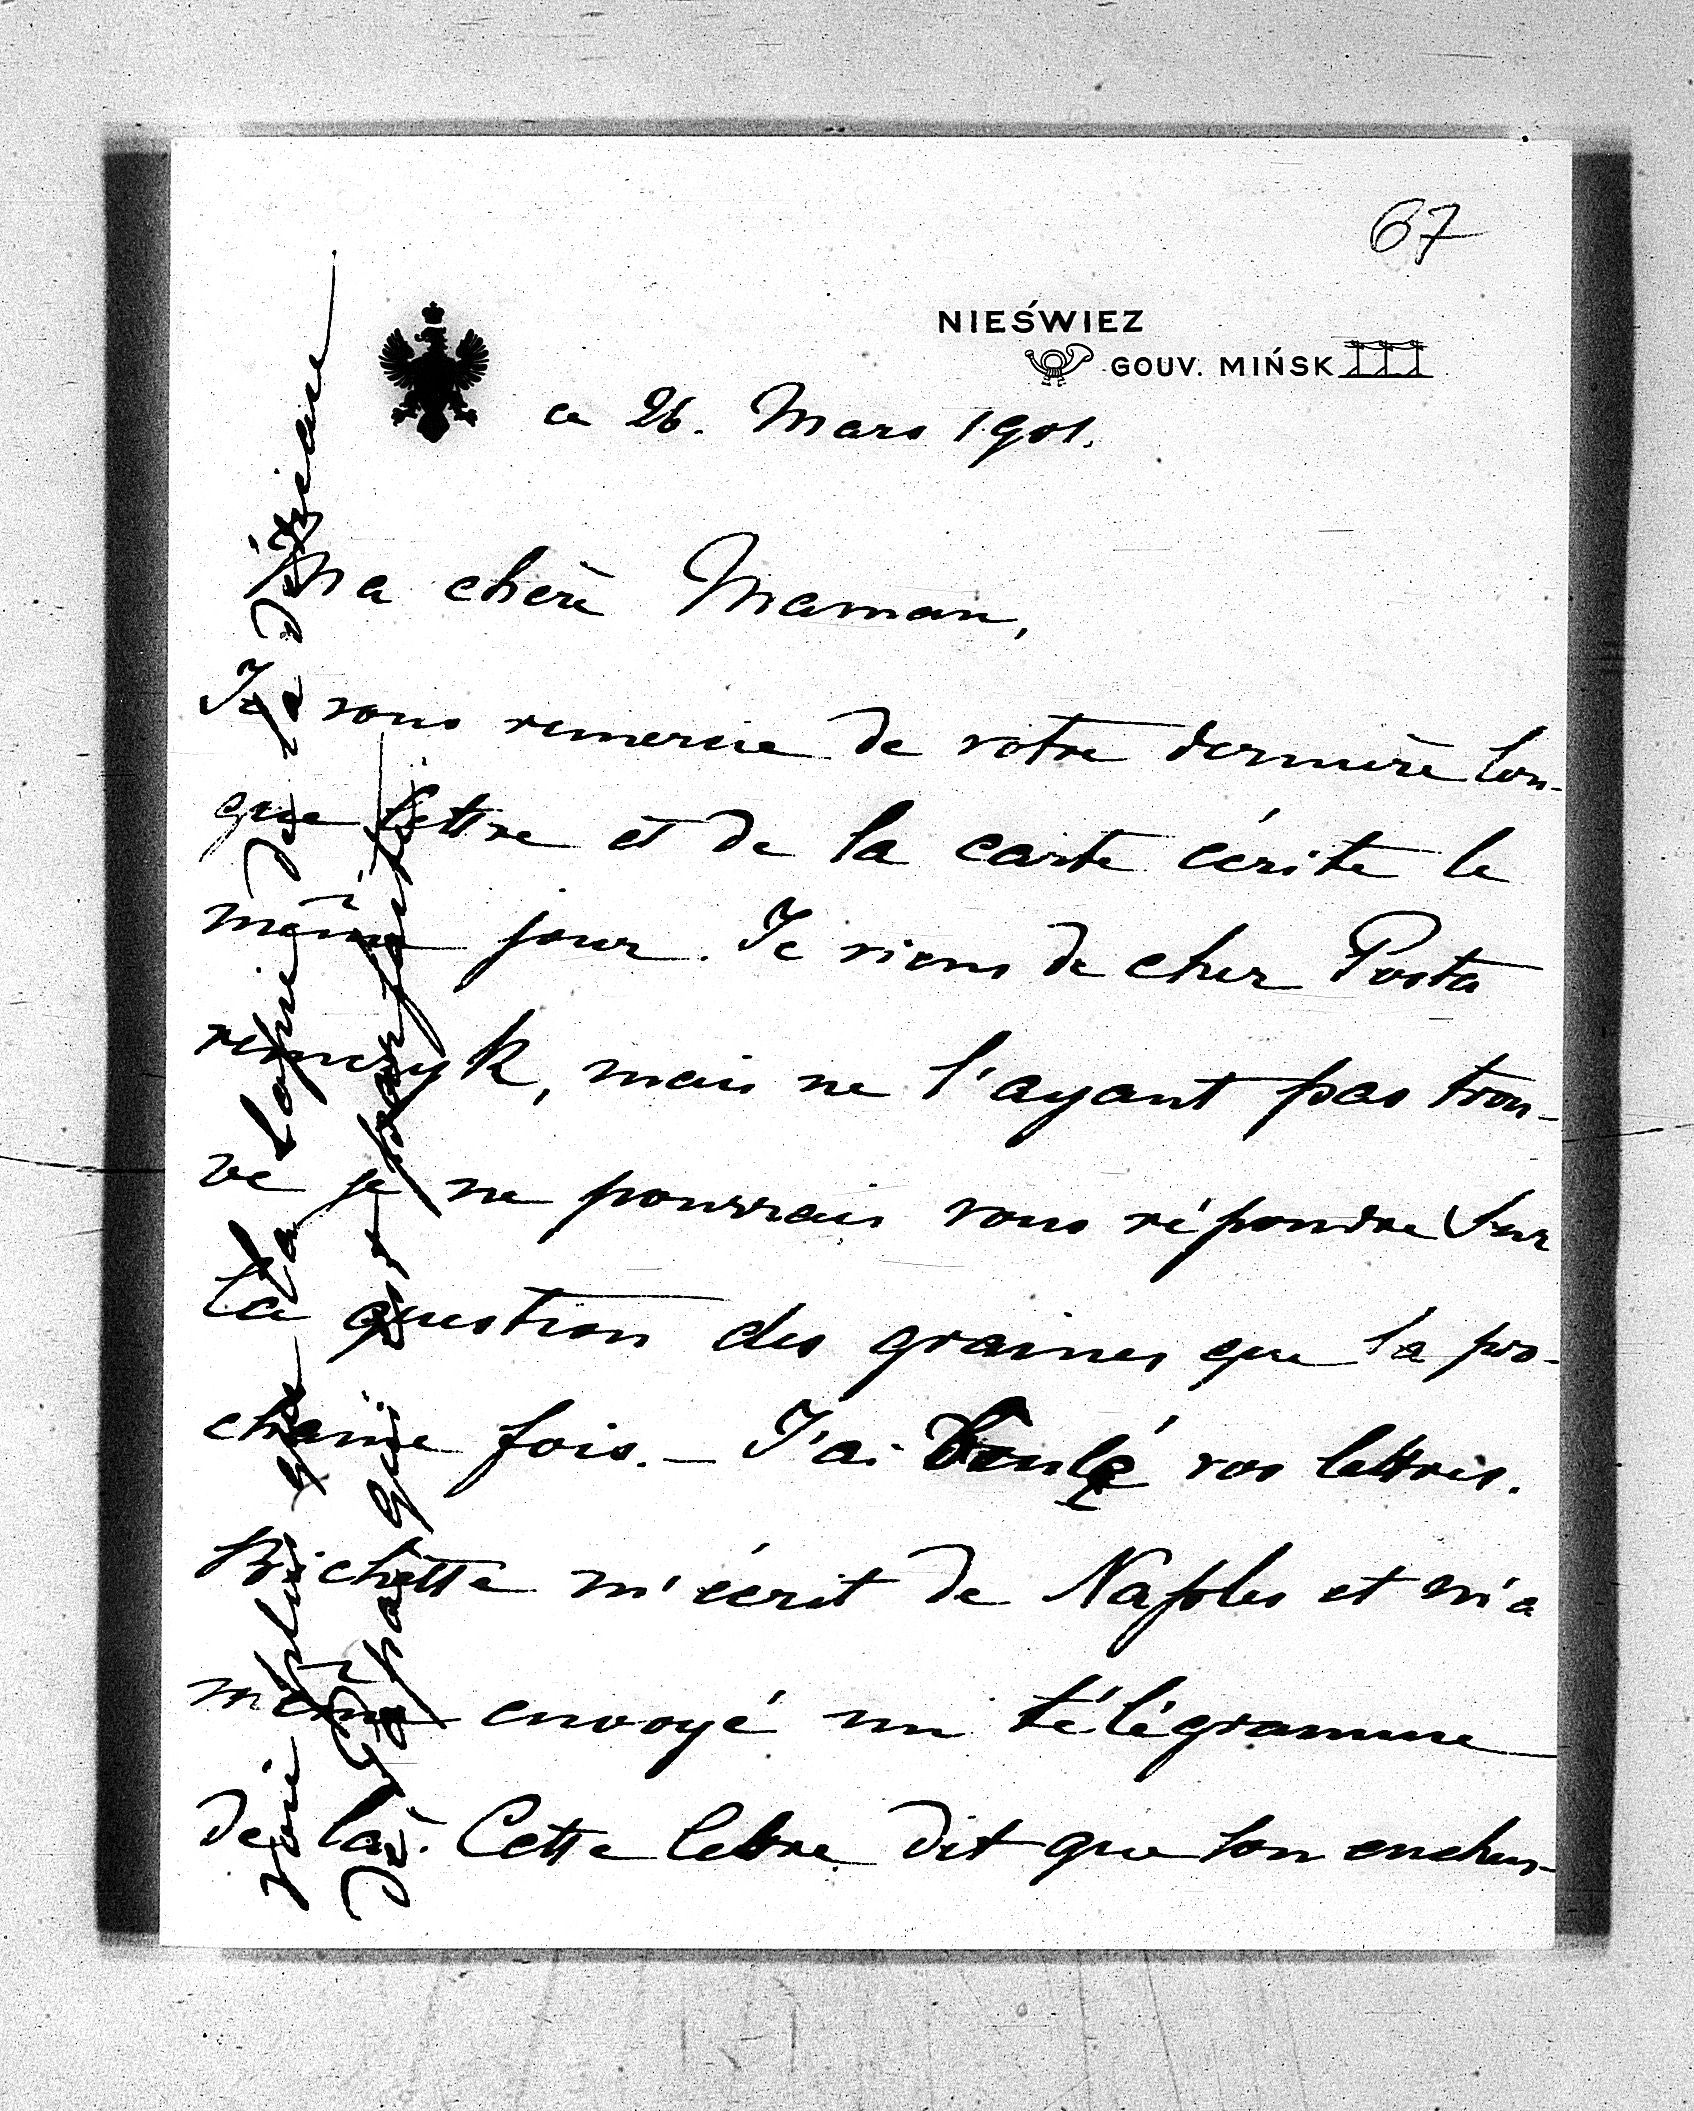 67
NIEŚWIEZ
GOUV. MIŃSK
ce 26. Mars 1901.
Ma chère Maman,
Je vous remercie de votre dernière lon-
gue lettre et de la carte écrite le
même jour. Je viens de chez Posta
remczyk, mais ne l'ayant pas trou-
vé je ne pourrais vous répondre sur
la question des graines que la pro-
chaine fois. — J'ai brulé vos lettres.
Bichette m'écrit de Naples et m'a
même envoyé un télégramme
de là. Cette lettre dit que son
Voici plus que la copie de la dixième
de Papa qui est parfaite.